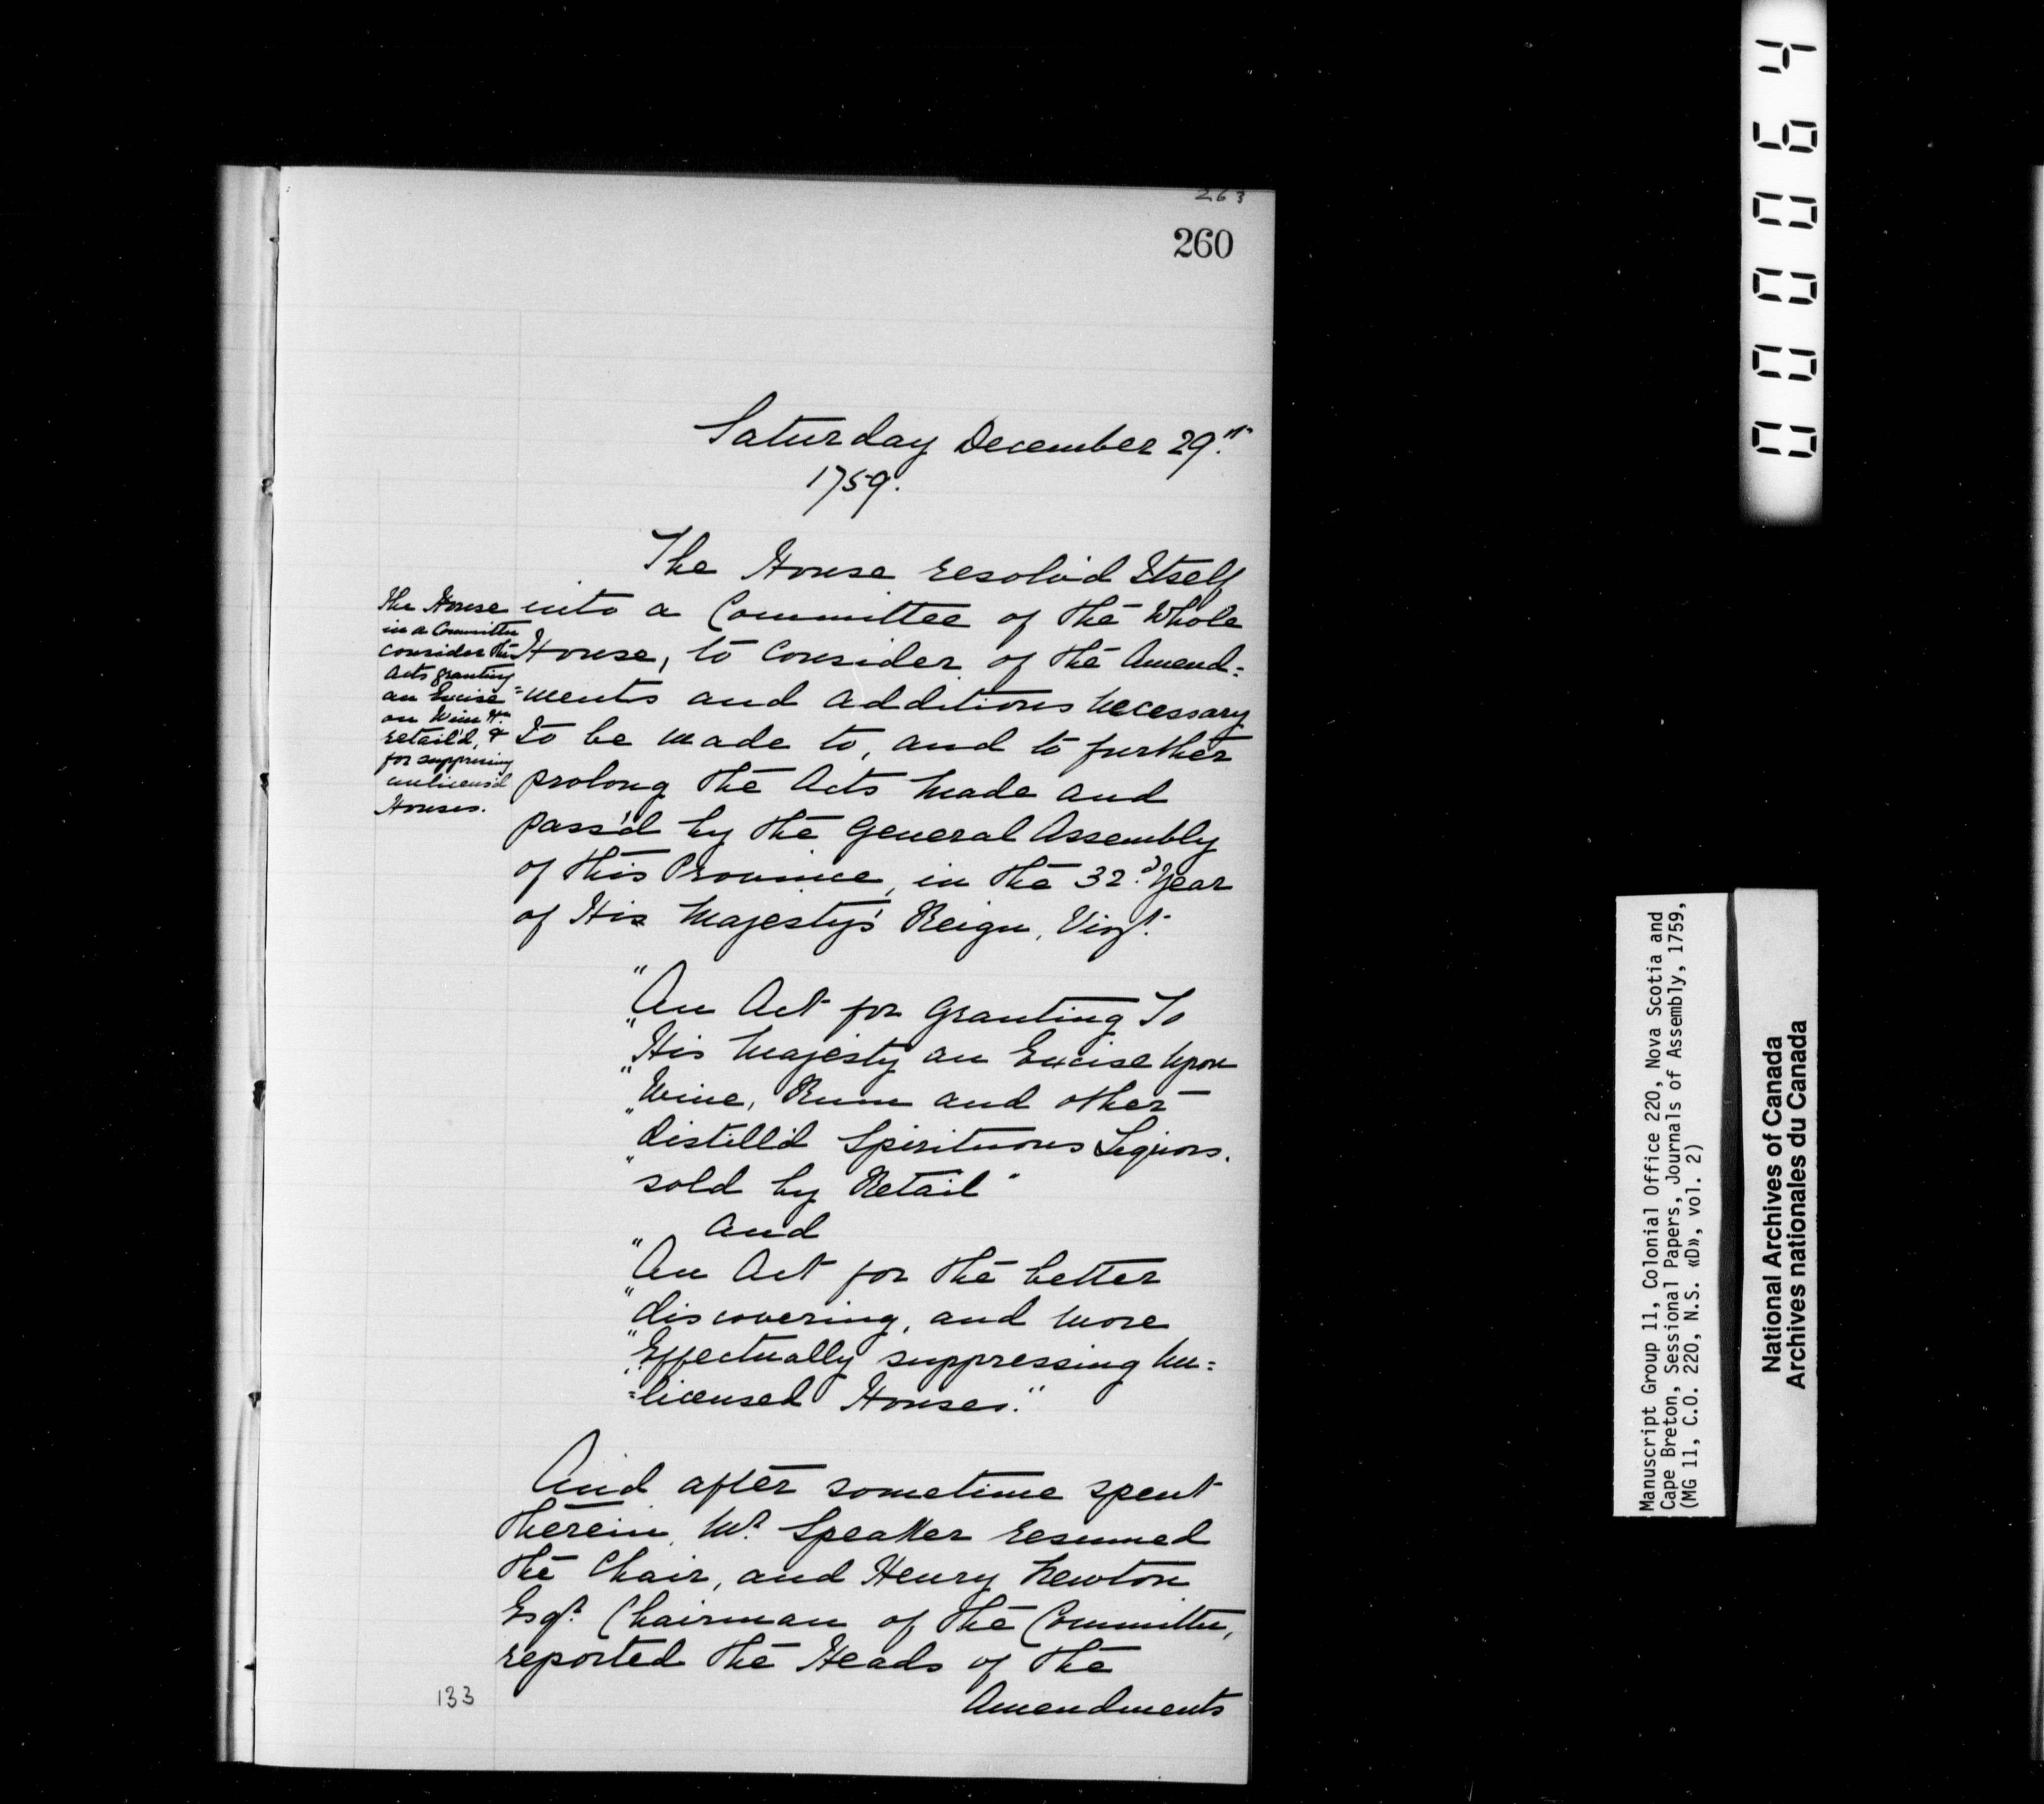 263
260
Saturday December 29.th
1759.
The House resolv'd Itself
into a Committee of the Whole
House, to Consider of the Amend=
=ments and additions Necessary
To be made to, and to further
prolong the Acts Made and
pass'd by the General Assembly
of this Province, in the 32.d Year
of His Majesty's Reign, Vizt.
The House
in a Committee
consider the
Acts granting
an Excise
on Wine &c.
retail'd, &
for suppressing
unlicens'd
Houses.
"An Act for Granting To
"His Majesty an Excise Upon
"Wine, Rum and other
"distill'd Spirituous Liquors.
"sold by Retail"
and
"An Act for the better
"discovering, and More
"Effectually suppressing Un=
"=licensed Houses."
And after sometime spent
therein, Mr. Speaker resumed
the Chair, and Henry Newton
Esqr. Chairman of the Committee,
reported the Heads of the
Amendments
133
000064
Manuscript Group 11, Colonial Office 220, Nova Scotia and
Cape Breton, Sessional Papers, Journals of Assembly, 1759,
(MG 11, C.O. 220, N.S. «D», vol. 2)
National Archives of Canada
Archives nationales du Canada